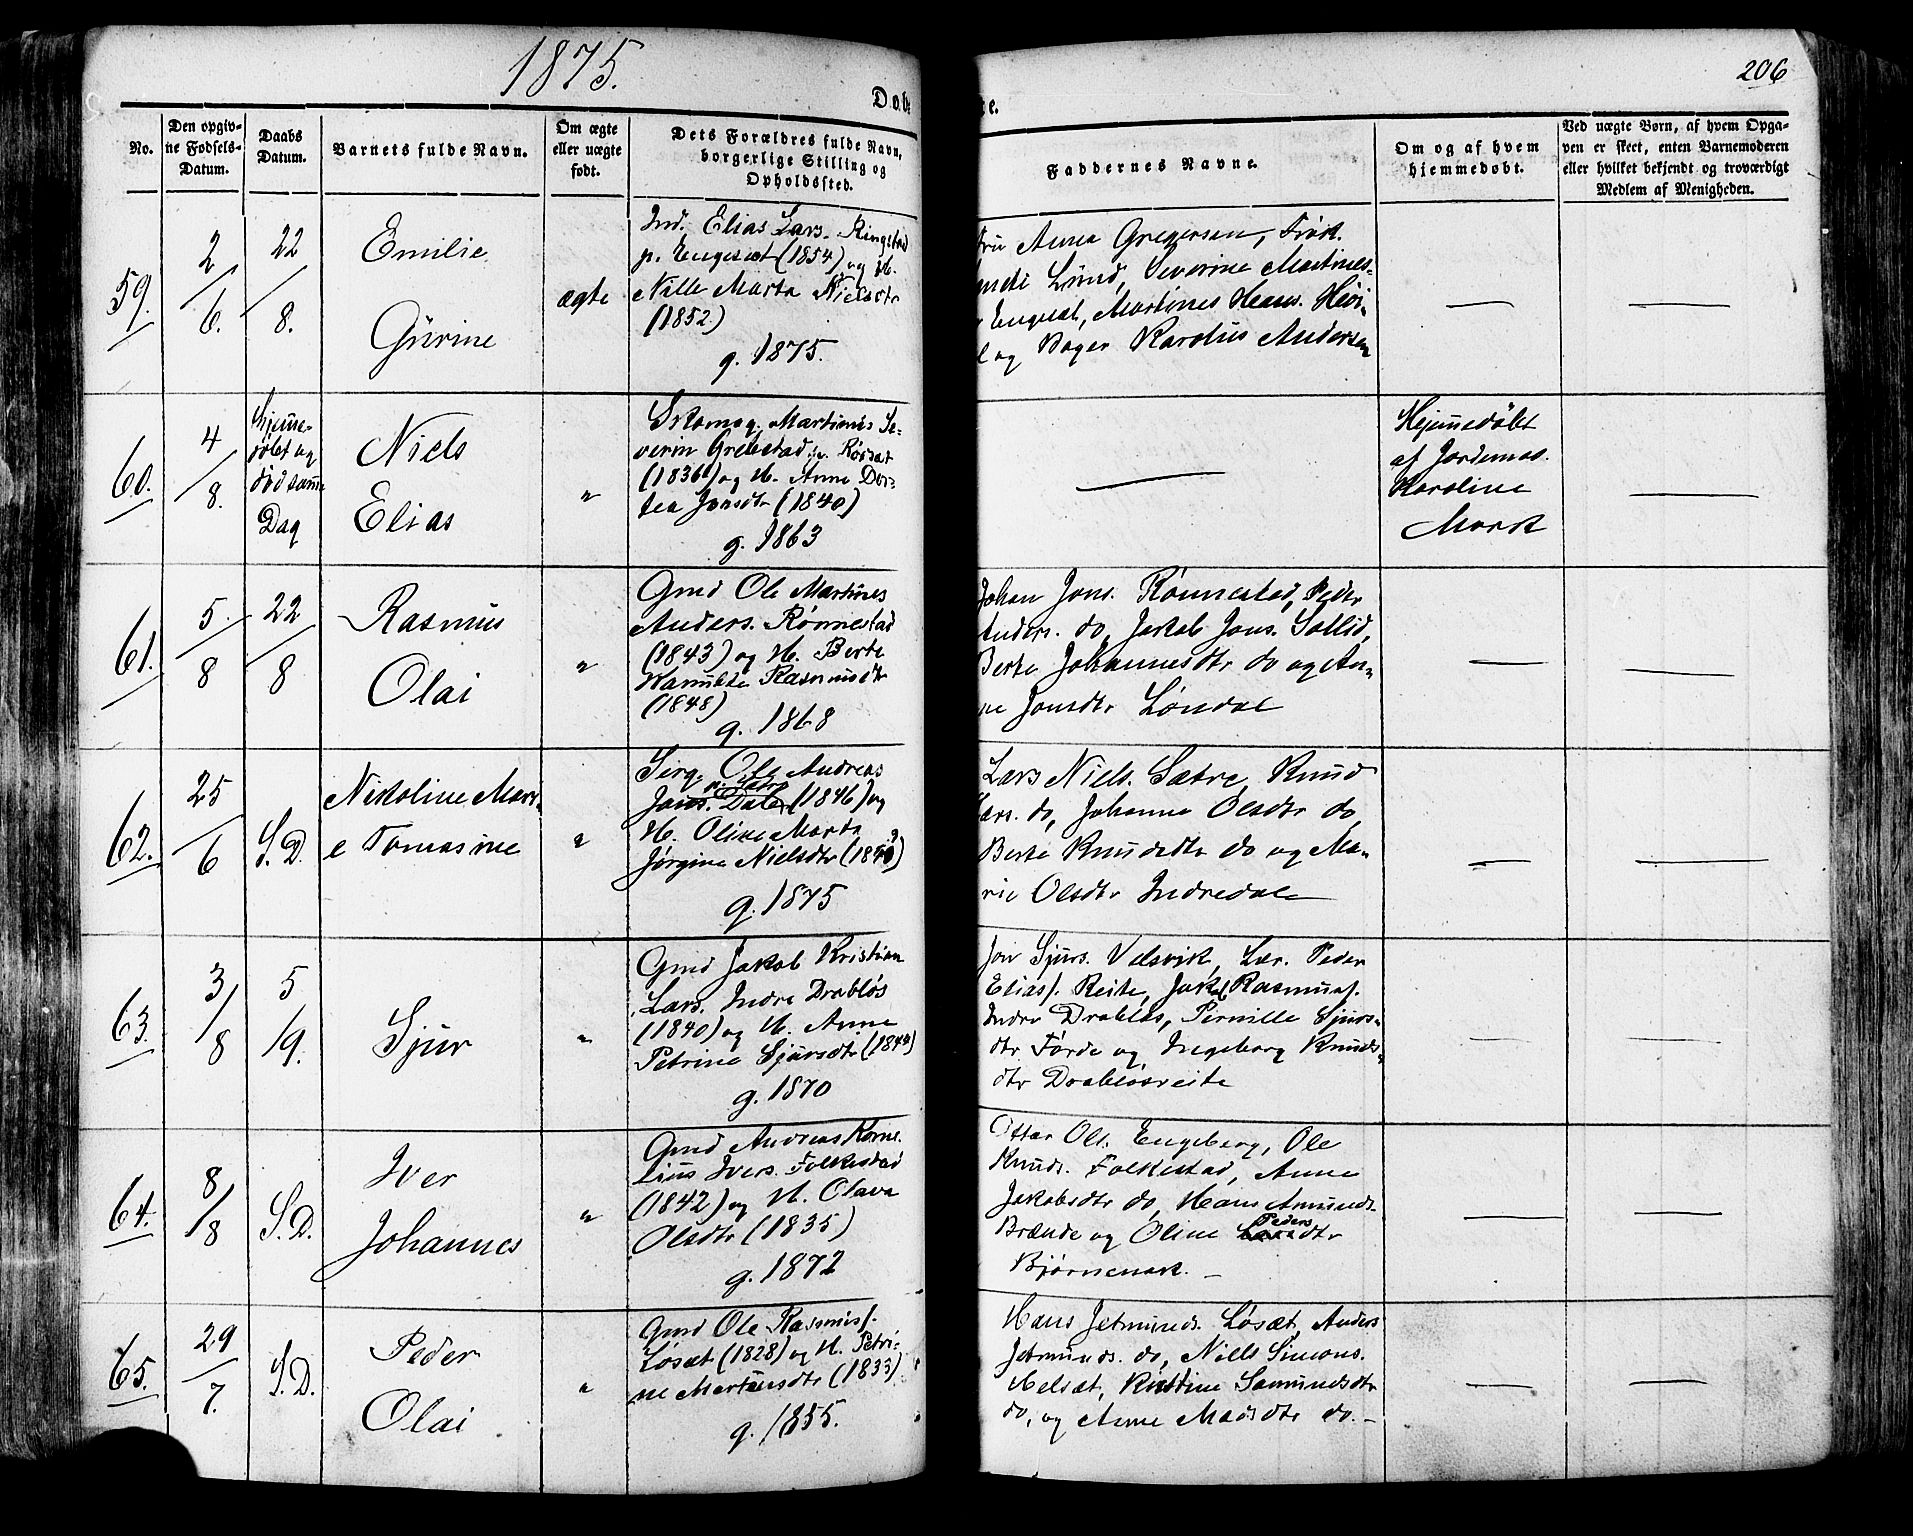 1875.
206
Døbte.
No.
Den opgiv-
ne Fødsels-
Datum.
Daabs
Datum.
Barnets fulde Navn.
Om ægte
eller uægte
født.
Dets Forældres fulde Navn,
borgerlige Stilling og
Opholdssted.
Faddernes Navne.
Om og af hvem
hjemmedøbt.
Ved uægte Børn, af hvem Opga-
ven er skeet, enten Barnemoderen
eller hvilket bekjendt og troværdigt
Medlem af Menigheden.
59.
2/6.
22/8.
Emilie
Gurine
ægte
Ind. Elias Lars. Ringstad
p. Engeset (1854) og H.
Nille Marta Nielsdtr
(1852)
g. 1875.
Anna Gregersen, Frøk.
Lund, Severine Martines-
Martines Hans.
og Bager Karolus Andersen
60.
4/8.
Hjemme-
døbt og
død samme
Dag
Niels
Elias
"
Skomag. Martinus Se-
verin Grebstad p. Røsæt
(1836) og H. Anne Dor-
tea Jonsdtr (1840)
g. 1863
Hjemmedøbt
af Jordemod.
Karoline
Mork
61.
5./8
22/8
Rasmus
Olai
"
Gmd Ole Martinus
Anders. Rønnestad
(1843) og H. Berte
Rasmusdtr
(1848)
g. 1868
Johan Jons. Rønnestad, Peder
Anders. do, Jakob Jons. Sollid,
Berte Johannesdtr do og An-
ne Jonsdtr Løndal
62.
25/6
S.D.
Nikoline Mari-
e Tomasine
"
Ole Andreas
p. Sætre
Jons. Dale (1846) og
H. Oline Marta
Jørgine Nielsdtr
g. 1875
Lars Niels. Sætre, Knud
Lars. do, Johanna Olsdtr do
Berte Knudsdtr do og Ma-
rie Olsdtr Indredale
63.
3/8
5/9.
Sjur
"
Gmd Jakob Kristian
Lars. Indre Drabløs
(1840) og H. Anne
Petrine Sjursdtr (1844)
g. 1870
Jon Sjurs. Velsvik, Lær. Peder
Eliass. Reite, Jak. Rasmuss.
Indre Drabløs, Pernille Sjurs-
dtr Førde og Ingeborg Knuds-
dtr Drabløsreite
64.
8/8
S.D.
Iver
Johannes
"
Gmd Andreas Korne-
lius Ivers. Folkestad
(1842) og H. Olava
Olsdtr (1835)
g. 1872
Ottar Ols. Engeberg, Ole
Knuds. Folkestad, Anne
Jakobsdtr do, Hans Amunds.
Brænde og Oline Pedersdtr
Bjørnenak. —
65.
29/7.
S.D.
Peder
Olai
"
Gmd Ole Rasmuss.
Løsæt (1828) og H. Petri-
ne Martinusdtr (1833)
g. 1855.
Hans Jetmunds. Løsæt, Anders
Jetmunds. do, Niels Simons.
Helsæt, Kristine Samundsdtr
do, og Anne Madsdtr do. —